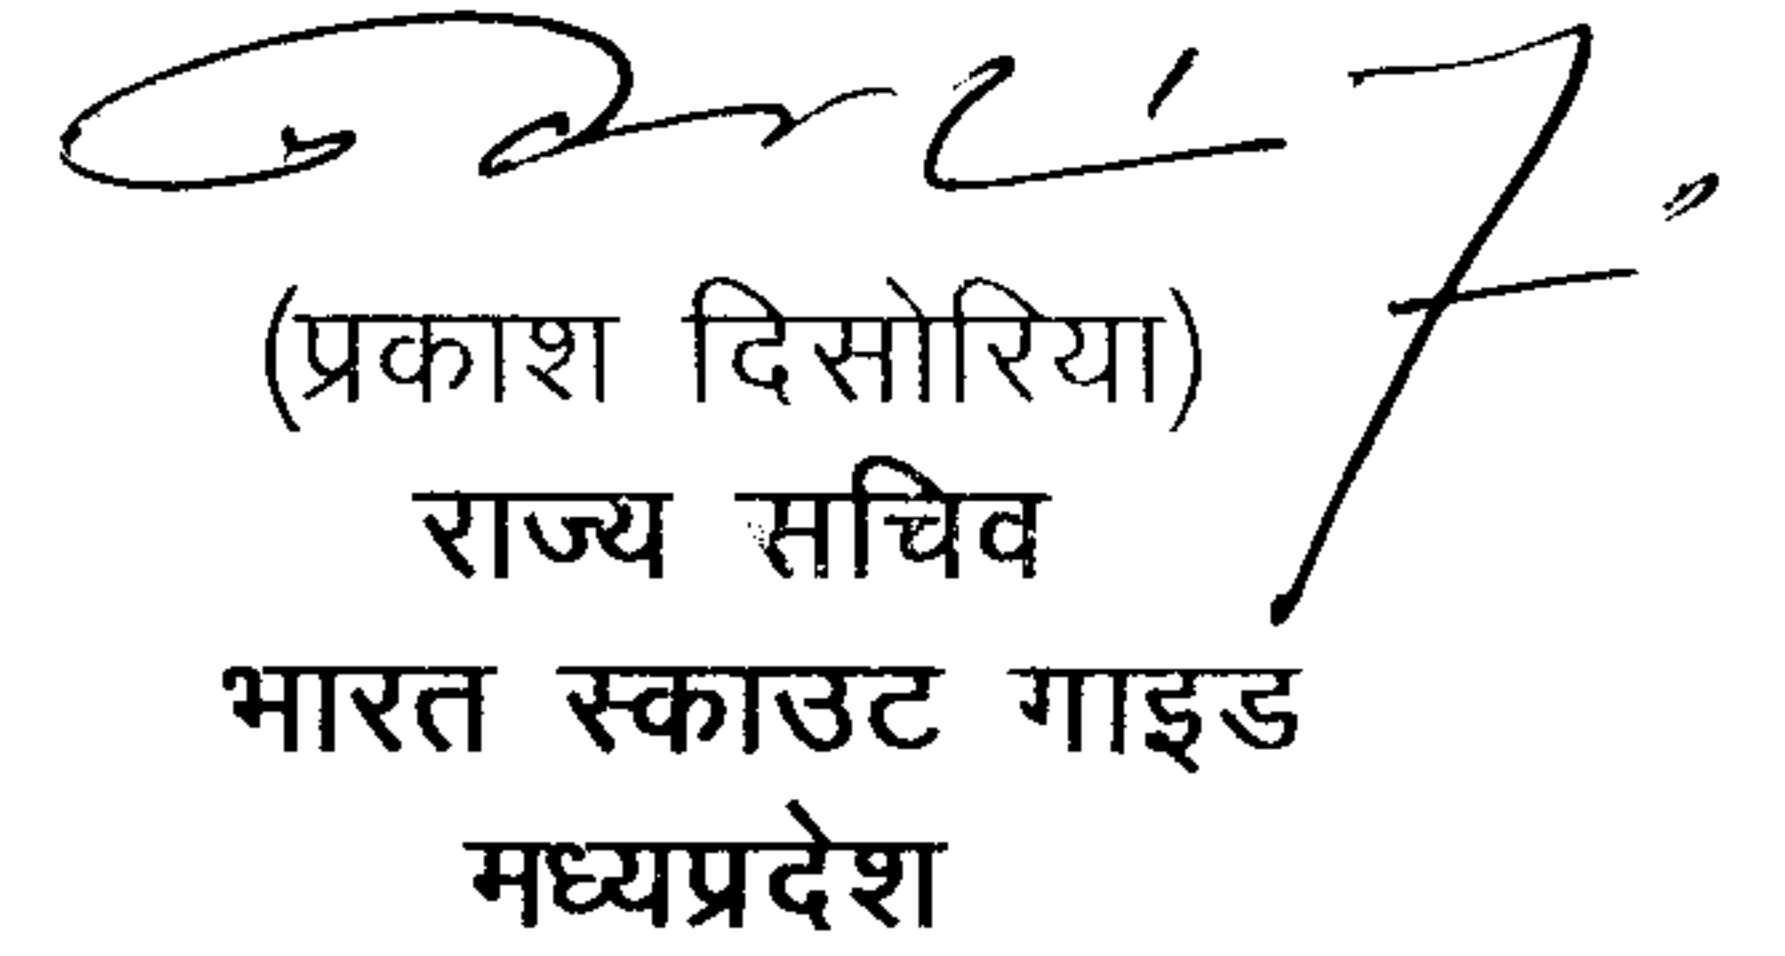 (प्रकाश दिसोरिया)
राज्य सचिव
भारत स्काउट गाइड
मध्यप्रदेश